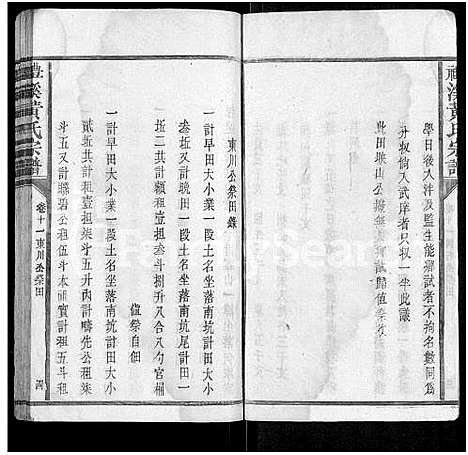 禮溪黃氏宗譜
學日後入泮及監生能鄉試者不拘名數同爲
分收倘入武庠者只收一半此議
此田塅山公
值祭收
東川公祭田錄
一計早田大小業一段土名坐落南坑計田大小
叁坵又計晚田一段土名坐落南坑尾計田一
坵二共計額租叁斗捌升八合八勺官楜
值祭自佃
一計早田大小業一段土名坐落南坑計田大小
貳坵共計租壹担柒斗五升內計疇先公租柒
斗五又計睩碧公租伍斗本祠實計租五斗租
禮溪黃氏宗譜
卷十一 東川公祭田